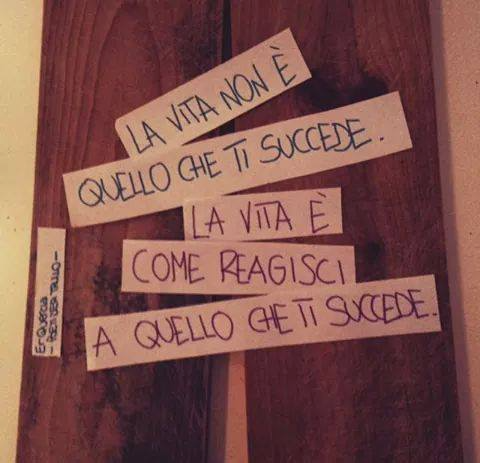 LA VITA NON È
QUELLO CHE TI SUCCEDE.
LA VITA È
COME REAGISCI
A QUELLO CHE TI SUCCEDE.
Er Quercia
- POETI DER TRULLO -